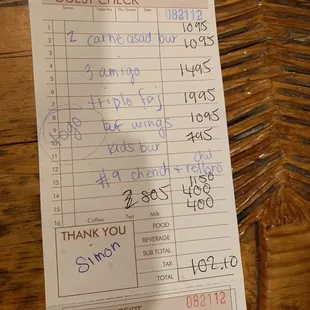 GUEST CHECK
Server Table No. No. Guests Date 082112
1 1095
2 2 carne asad bur 1095
3
4 3 amigo 1495
5
6
7 triple faj 1995
8 1095
9 buf wings
10 kids bur 795
11
12 #9 chench + relleno
13 1150
14 400
15 400
16
Togo
Coffee Tea Milk
THANK YOU
Simon
FOOD
BEVERAGE
SUB TOTAL
TAX
TOTAL 102.10
082112